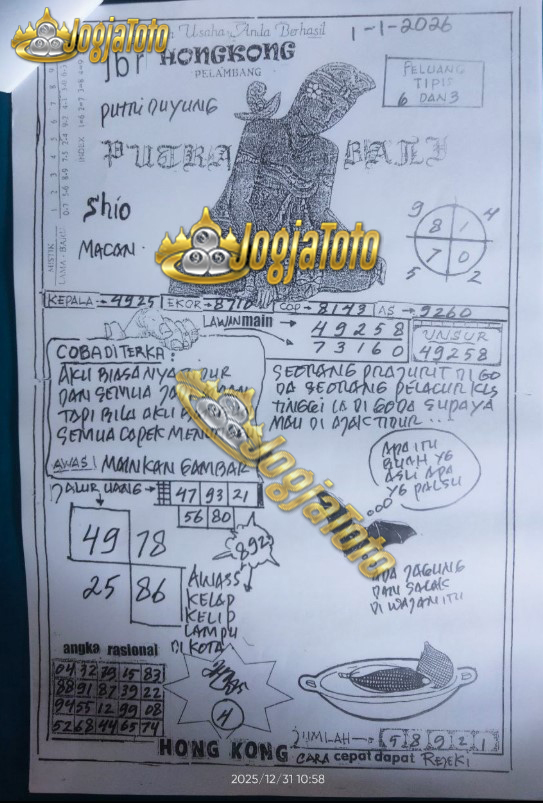 JogjaToto
Usaha Anda Berhasil
1-1-2026
HONGKONG
PELAMBANG
PELUANG
TIPIS
6 DAN 3
PUTRI DUYUNG
PUTRA BALI
Shio
MACAN.
9 4
8 1
7 0
5 2
JogjaToto
KEPALA → 4925 EKOR → 8710 COP → 8149 AS → 9260
LAWAN main → 49258
73160
UNSUR
49258
COBA DI TERKA:
AKU BIASANYA
DAN SEMUA
TAPI BILA AKU
SEMUA CAPEK
AWAS! MAINKAN GAMBAR
SEORANG PRAJURIT DI GO
DA SEORANG PELACUR KLS
TINGGI IA DI GODA SUPAYA
MAU DI AJAK TIDUR...
APA ITU
BUAH YG
ASLI APA
YG PALSU
JALUR UANG → 47 93 21
56 80
49 78
25 86
892
AWASS
KELAP
KELIP
LAMPU
DI KOTA
JogjaToto
ADA JAGUNG
DAN SALAK
DI WAJAN ITU
angka rasional
04 32 79 15 83
88 91 87 39 22
94 55 12 99 08
52 68 44 65 74
4
JUMLAH → 5 8 9 2 1
HONG KONG CARA cepat dapat REJEKI
2025/12/31 10:58